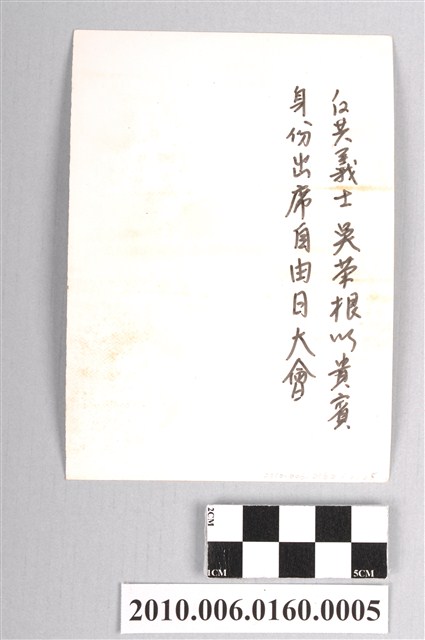 反共義士吳荣根以貴賓
身份出席自由日大會
2CM
1CM
5CM
2010.006.0160.0005